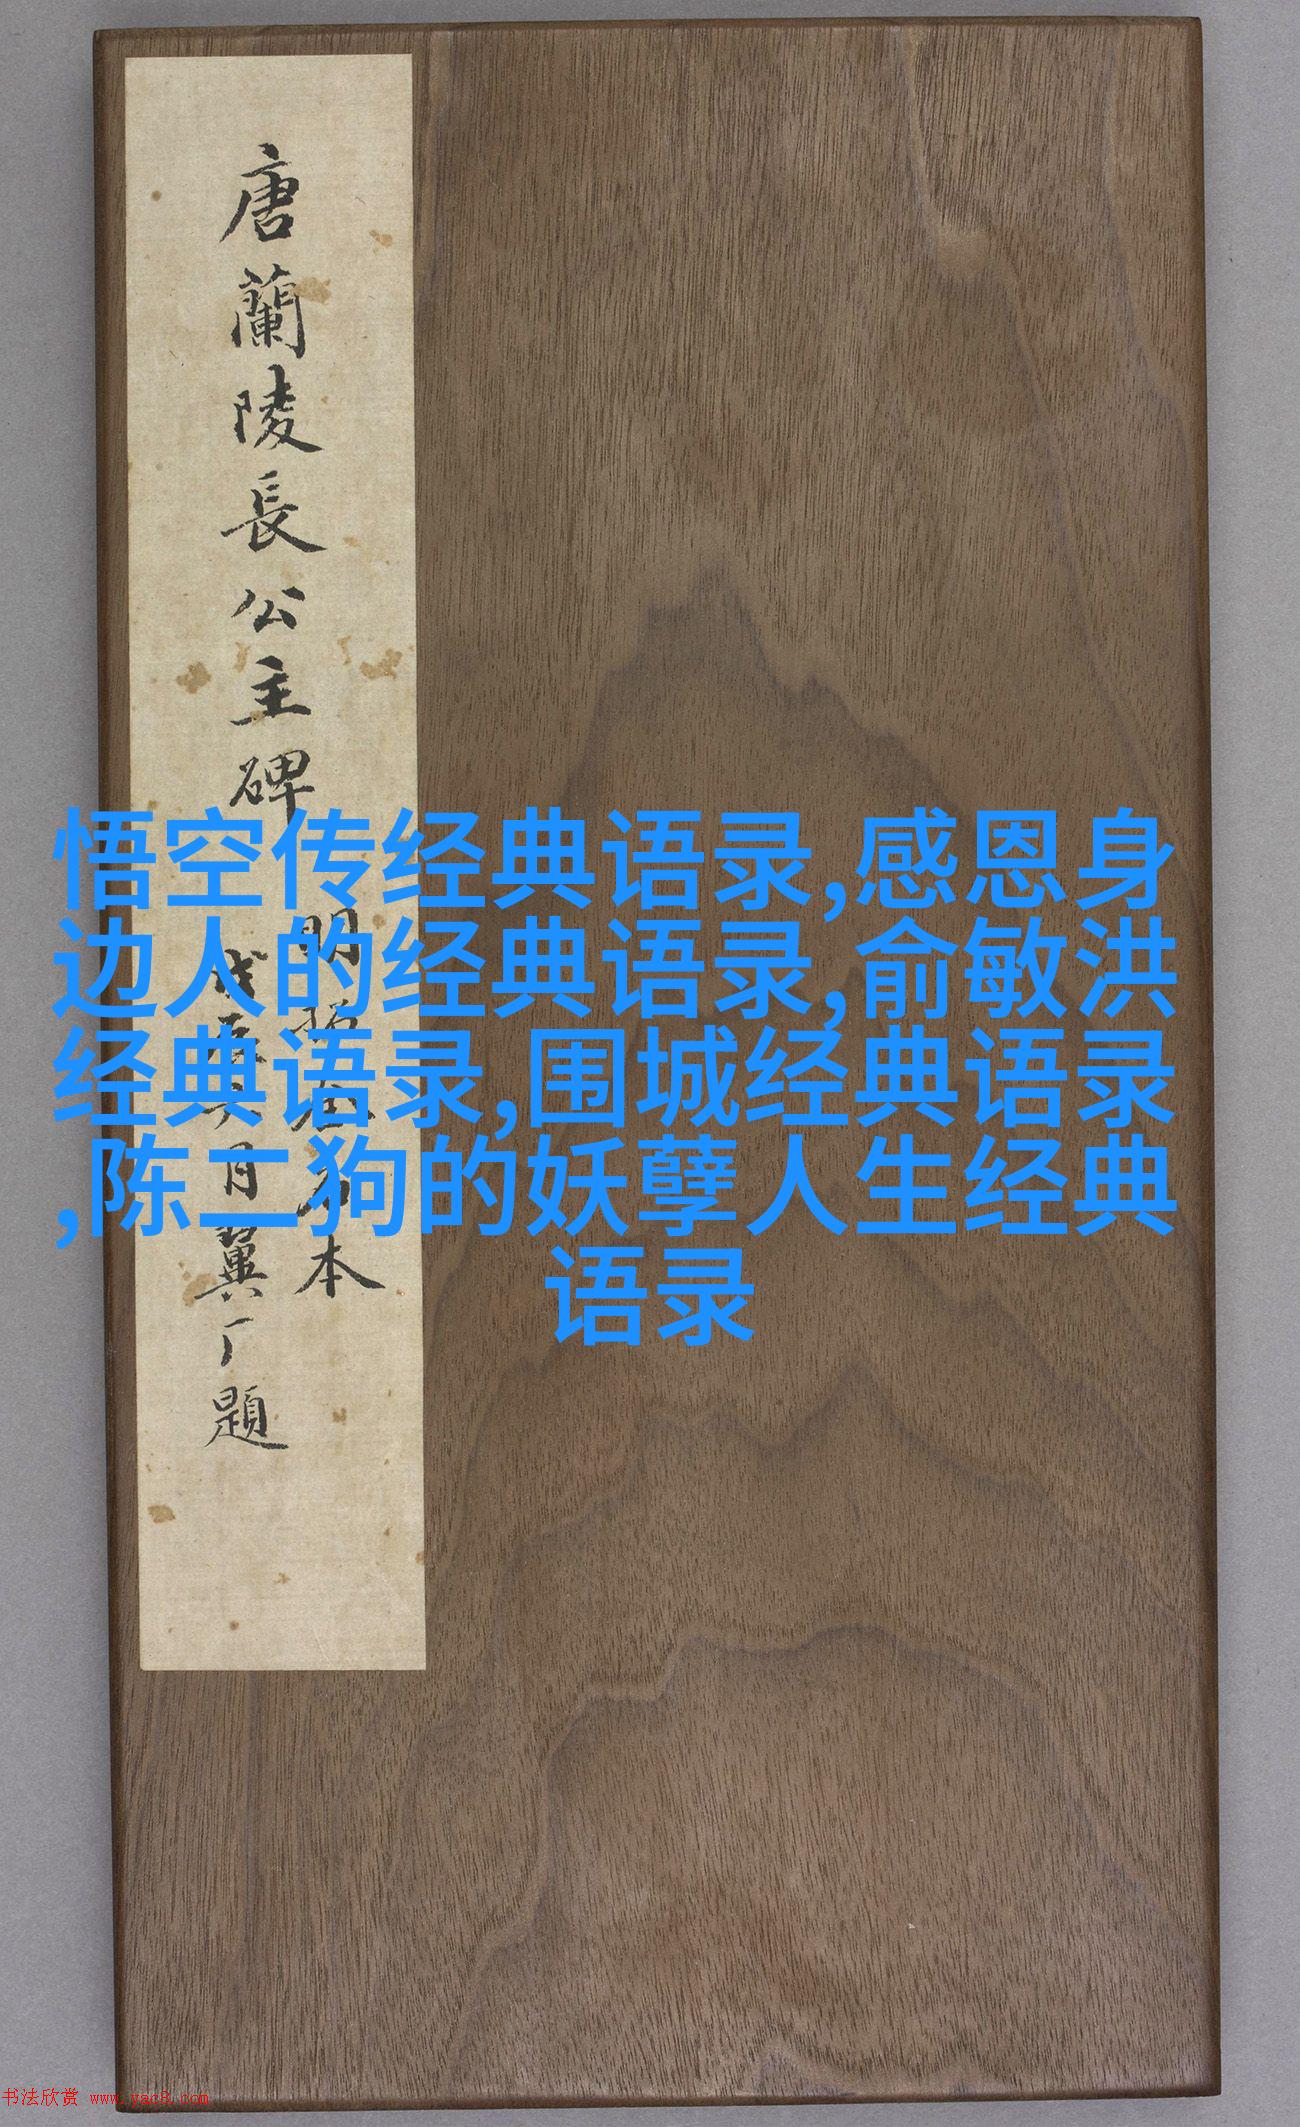 唐蘭陵長公主碑
悟空传经典语录,感恩身
边人的经典语录,俞敏洪
经典语录,围城经典语录
,陈二狗的妖孽人生经典
语录
本
月翼厂題
书法欣赏 www.yac8.com